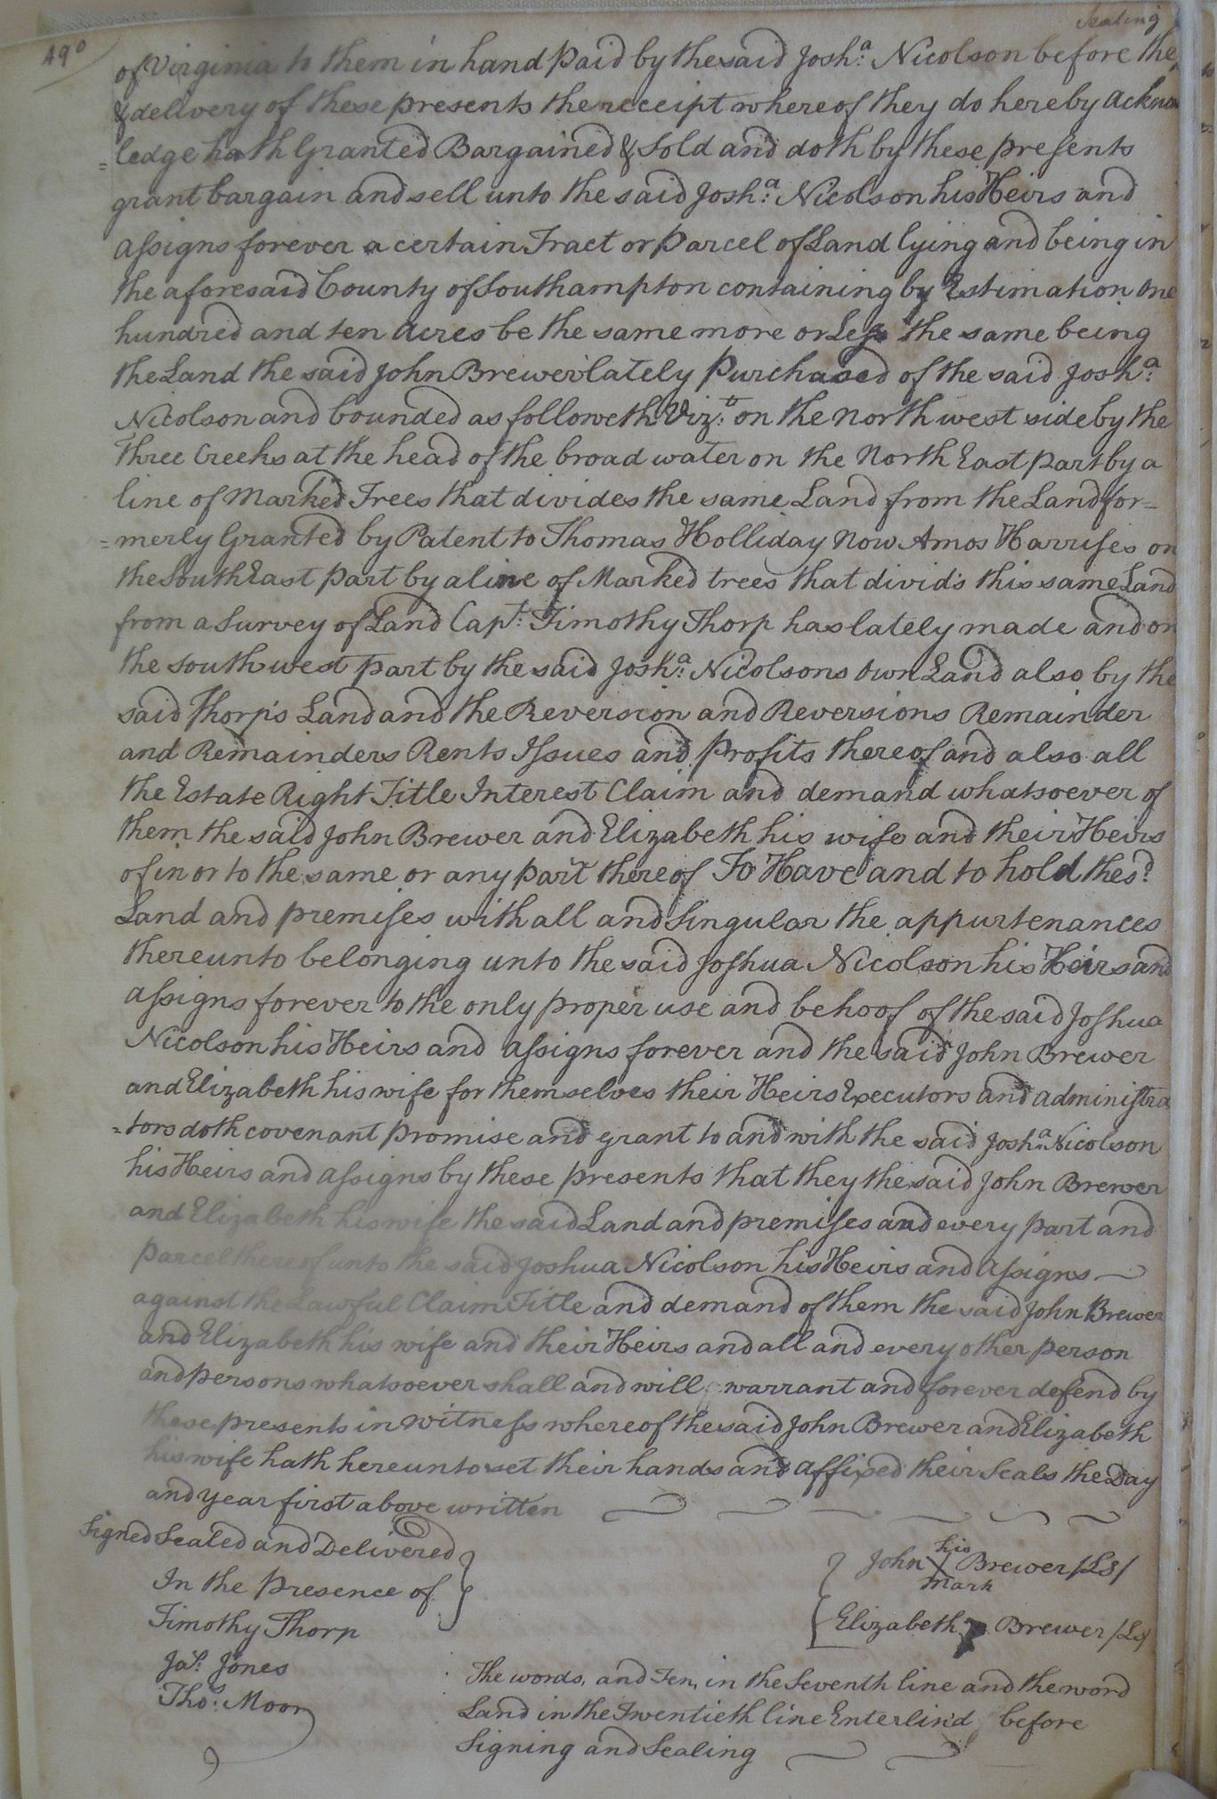 490
Sealing
of Virginia to them in hand paid by the said Josh.a Nicolson before the
& delivery of these presents the receipt whereof they do hereby Acknow
=ledge hath Granted Bargained & Sold and doth by these presents
grant bargain and sell unto the said Josh.a Nicolson his Heirs and
assigns forever a certain Tract or parcel of Land lying and being in
the aforesaid County of Southampton containing by Estimation One
hundred and ten Acres be the same more or Less the same being
the Land the said John Brewer lately Purchased of the said Josh.a
Nicolson and bounded as followeth Viz.t on the north west side by the
three Creeks at the head of the broad water on the North East part by a
line of Marked Trees that divides the same Land from the Land for=
=merly Granted by Patent to Thomas Holliday Now Amos Harrises on
the South East part by a line of Marked trees that divid's this same Land
from a Survey of Land Cap.t Timothy Thorp has lately made and on
the south west part by the said Josh.a Nicolsons Own Land also by the
said Thorp's Land and the Reversion and Reversions Remainder
and Remainders Rents Issues and profits thereof and also all
the Estate Right Title Interest Claim and demand whatsoever of
them the said John Brewer and Elizabeth his wife and their Heirs
of in or to the same or any part thereof To Have and to hold the s.d
Land and premises with all and Singular the appurtenances
thereunto belonging unto the said Joshua Nicolson his Heirs and
assigns forever to the only proper use and behoof of the said Joshua
Nicolson his Heirs and assigns forever and the said John Brewer
and Elizabeth his wife for themselves their Heirs Executors and administra
=tors doth covenant promise and grant to and with the said Josh.a Nicolson
his Heirs and assigns by these presents that they the said John Brewer
and Elizabeth his wife the said Land and premises and every part and
parcel thereof unto the said Joshua Nicolson his Heirs and assigns
against the Lawful Claim Title and demand of them the said John Brewer
and Elizabeth his wife and their Heirs and all and every other person
and persons whatsoever shall and will warrant and forever defend by
these presents in witness whereof the said John Brewer and Elizabeth
his wife hath hereunto set their hands and affixed their Seals the Day
and year first above written
Signed Sealed and Delivered
In the presence of
Timothy Thorp
Ja.s Jones
Tho.s Moor
his
John X Brewer /LS/
mark
Elizabeth Brewer /LS/
The words, and Ten, in the Seventh line and the word
Land in the Twentieth line Enterlin'd before
Signing and Sealing